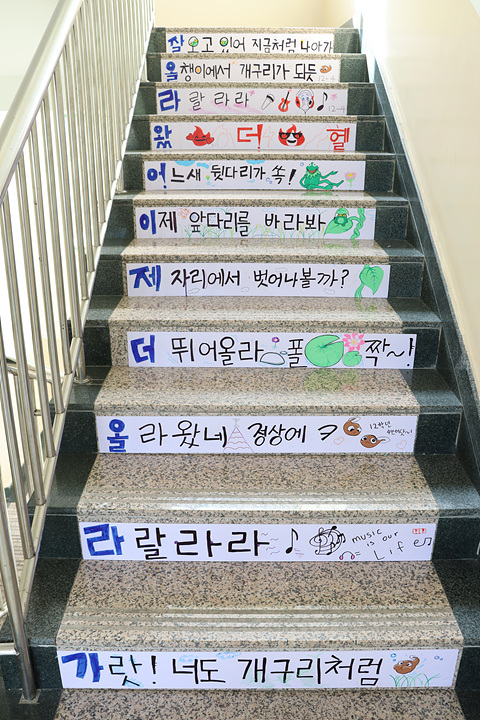 잠 오고 있어 지금처럼 나아가
올챙이에서 개구리가 되듯
라 랄 라 라
왔 더 헬
어느새 뒷다리가 쏙!
이제 앞다리를 바라봐
제 자리에서 벗어나볼까?
더 뛰어올라 폴짝~!
올라왔네 정상에 ㅋ
라랄라라 music is our Life
가랏! 너도 개구리처럼